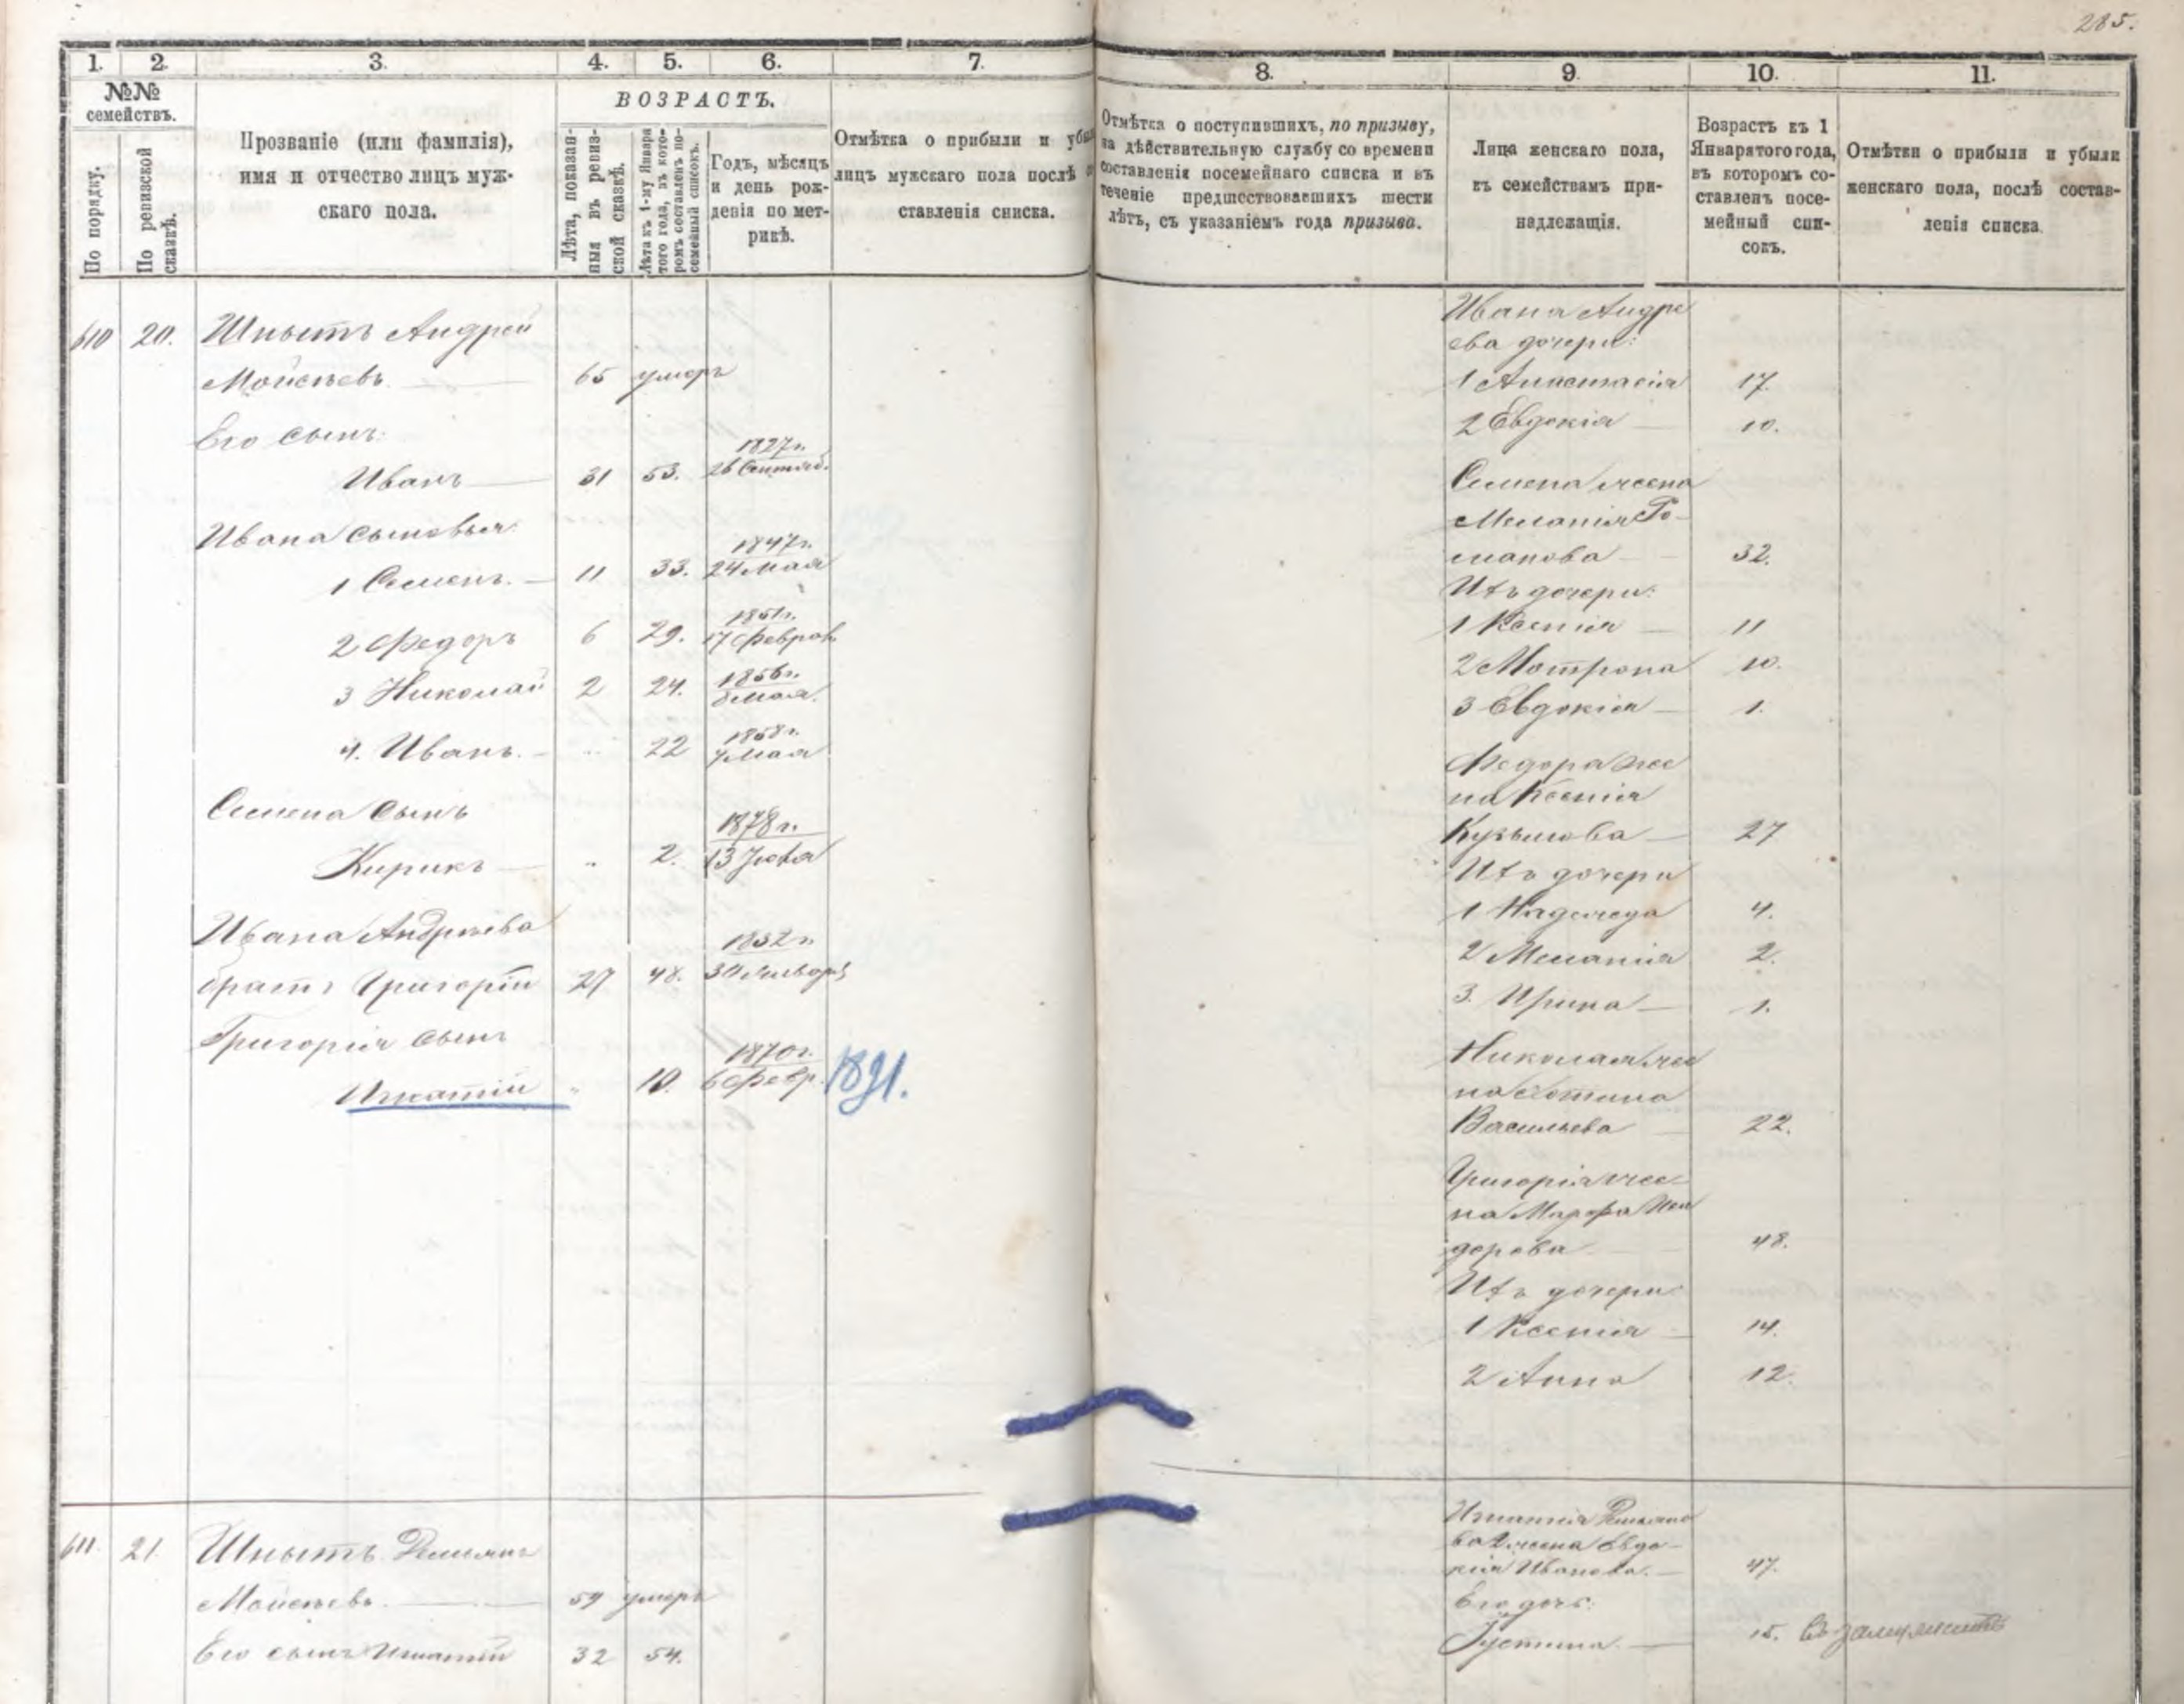 285.
1.
2.
3.
4.
5.
6.
7.
8.
9.
10.
11.
№№
семействъ.
По порядку.
По ревизской
сказкѣ.
Прозваніе (или фамилія),
имя и отчество лицъ муж-
скаго пола.
ВОЗРАСТЪ.
Лѣта, показан-
ныя въ ревиз-
ской сказкѣ.
Лѣта къ 1-му Января
того года, въ кото-
ромъ составленъ по-
семейный списокъ.
Годъ, мѣсяцъ
и день рож-
денія по мет-
рикѣ.
Отмѣтка о прибыли и убы
лицъ мужскаго пола послѣ
ставленія списка.
Отмѣтка о поступившихъ, по призыву,
на дѣйствительную службу со времени
составленія посемейнаго списка и въ
теченіе предшествовавшихъ шести
лѣтъ, съ указаніемъ года призыва.
Лица женскаго пола,
къ семействамъ при-
надлежащія.
Возрастъ къ 1
Января того года,
въ которомъ со-
ставленъ посе-
мейный спи-
сокъ.
Отмѣтки о прибыли и убыли
женскаго пола, послѣ состав-
ленія списка.
610 20. Шнытъ Андрей
Мойсѣевъ 65 умеръ
Его сынъ:
Иванъ 31 53. 1827г. 26 Сентяб.
Ивана сыновья:
1 Семенъ. 11 33. 1847г. 24 Мая
2 Федоръ 6 29. 1851г. 17 Феврал
3 Николай 2 24. 1856г. 8 Мая.
4. Иванъ. 22 1858г. 7 Мая
Семена сынъ
Кирикъ 2. 1878г. 13 Іюля
Ивана Андрѣева
братъ Григорій 27 48. 1832г. 30 Января
Григорія сынъ
Игнатій 10. 1870г. 6 Февр. 1891.
Ивана Андре
ева дочери:
1 Анастасія 17.
2 Евдокія 10.
Семена жена
Меланія Ро-
манова 32.
Ихъ дочери:
1 Ксенія 11
2 Мотрона 10.
3 Евдокія 1.
Федора же
на Ксенія
Кузьмова 27
Ихъ дочери
1 Надежда 4.
2 Меланія 2.
3. Ирина 1.
Николая же
на Фотина
Васильева 22.
Григорія же-
на Марфа Иси
дорова 48.
Ихъ дочери
1 Ксенія 14.
2 Анна 12.
611. 21. Шнытъ Демьянъ
Мойсѣевъ. 59 умеръ
Его сынъ Игнатій 32 54.
Игнатія Демьяно
ва 2 жена Евдо-
кія Иванова. 47.
Его дочь:
Густина. 15. Въ замужествѣ